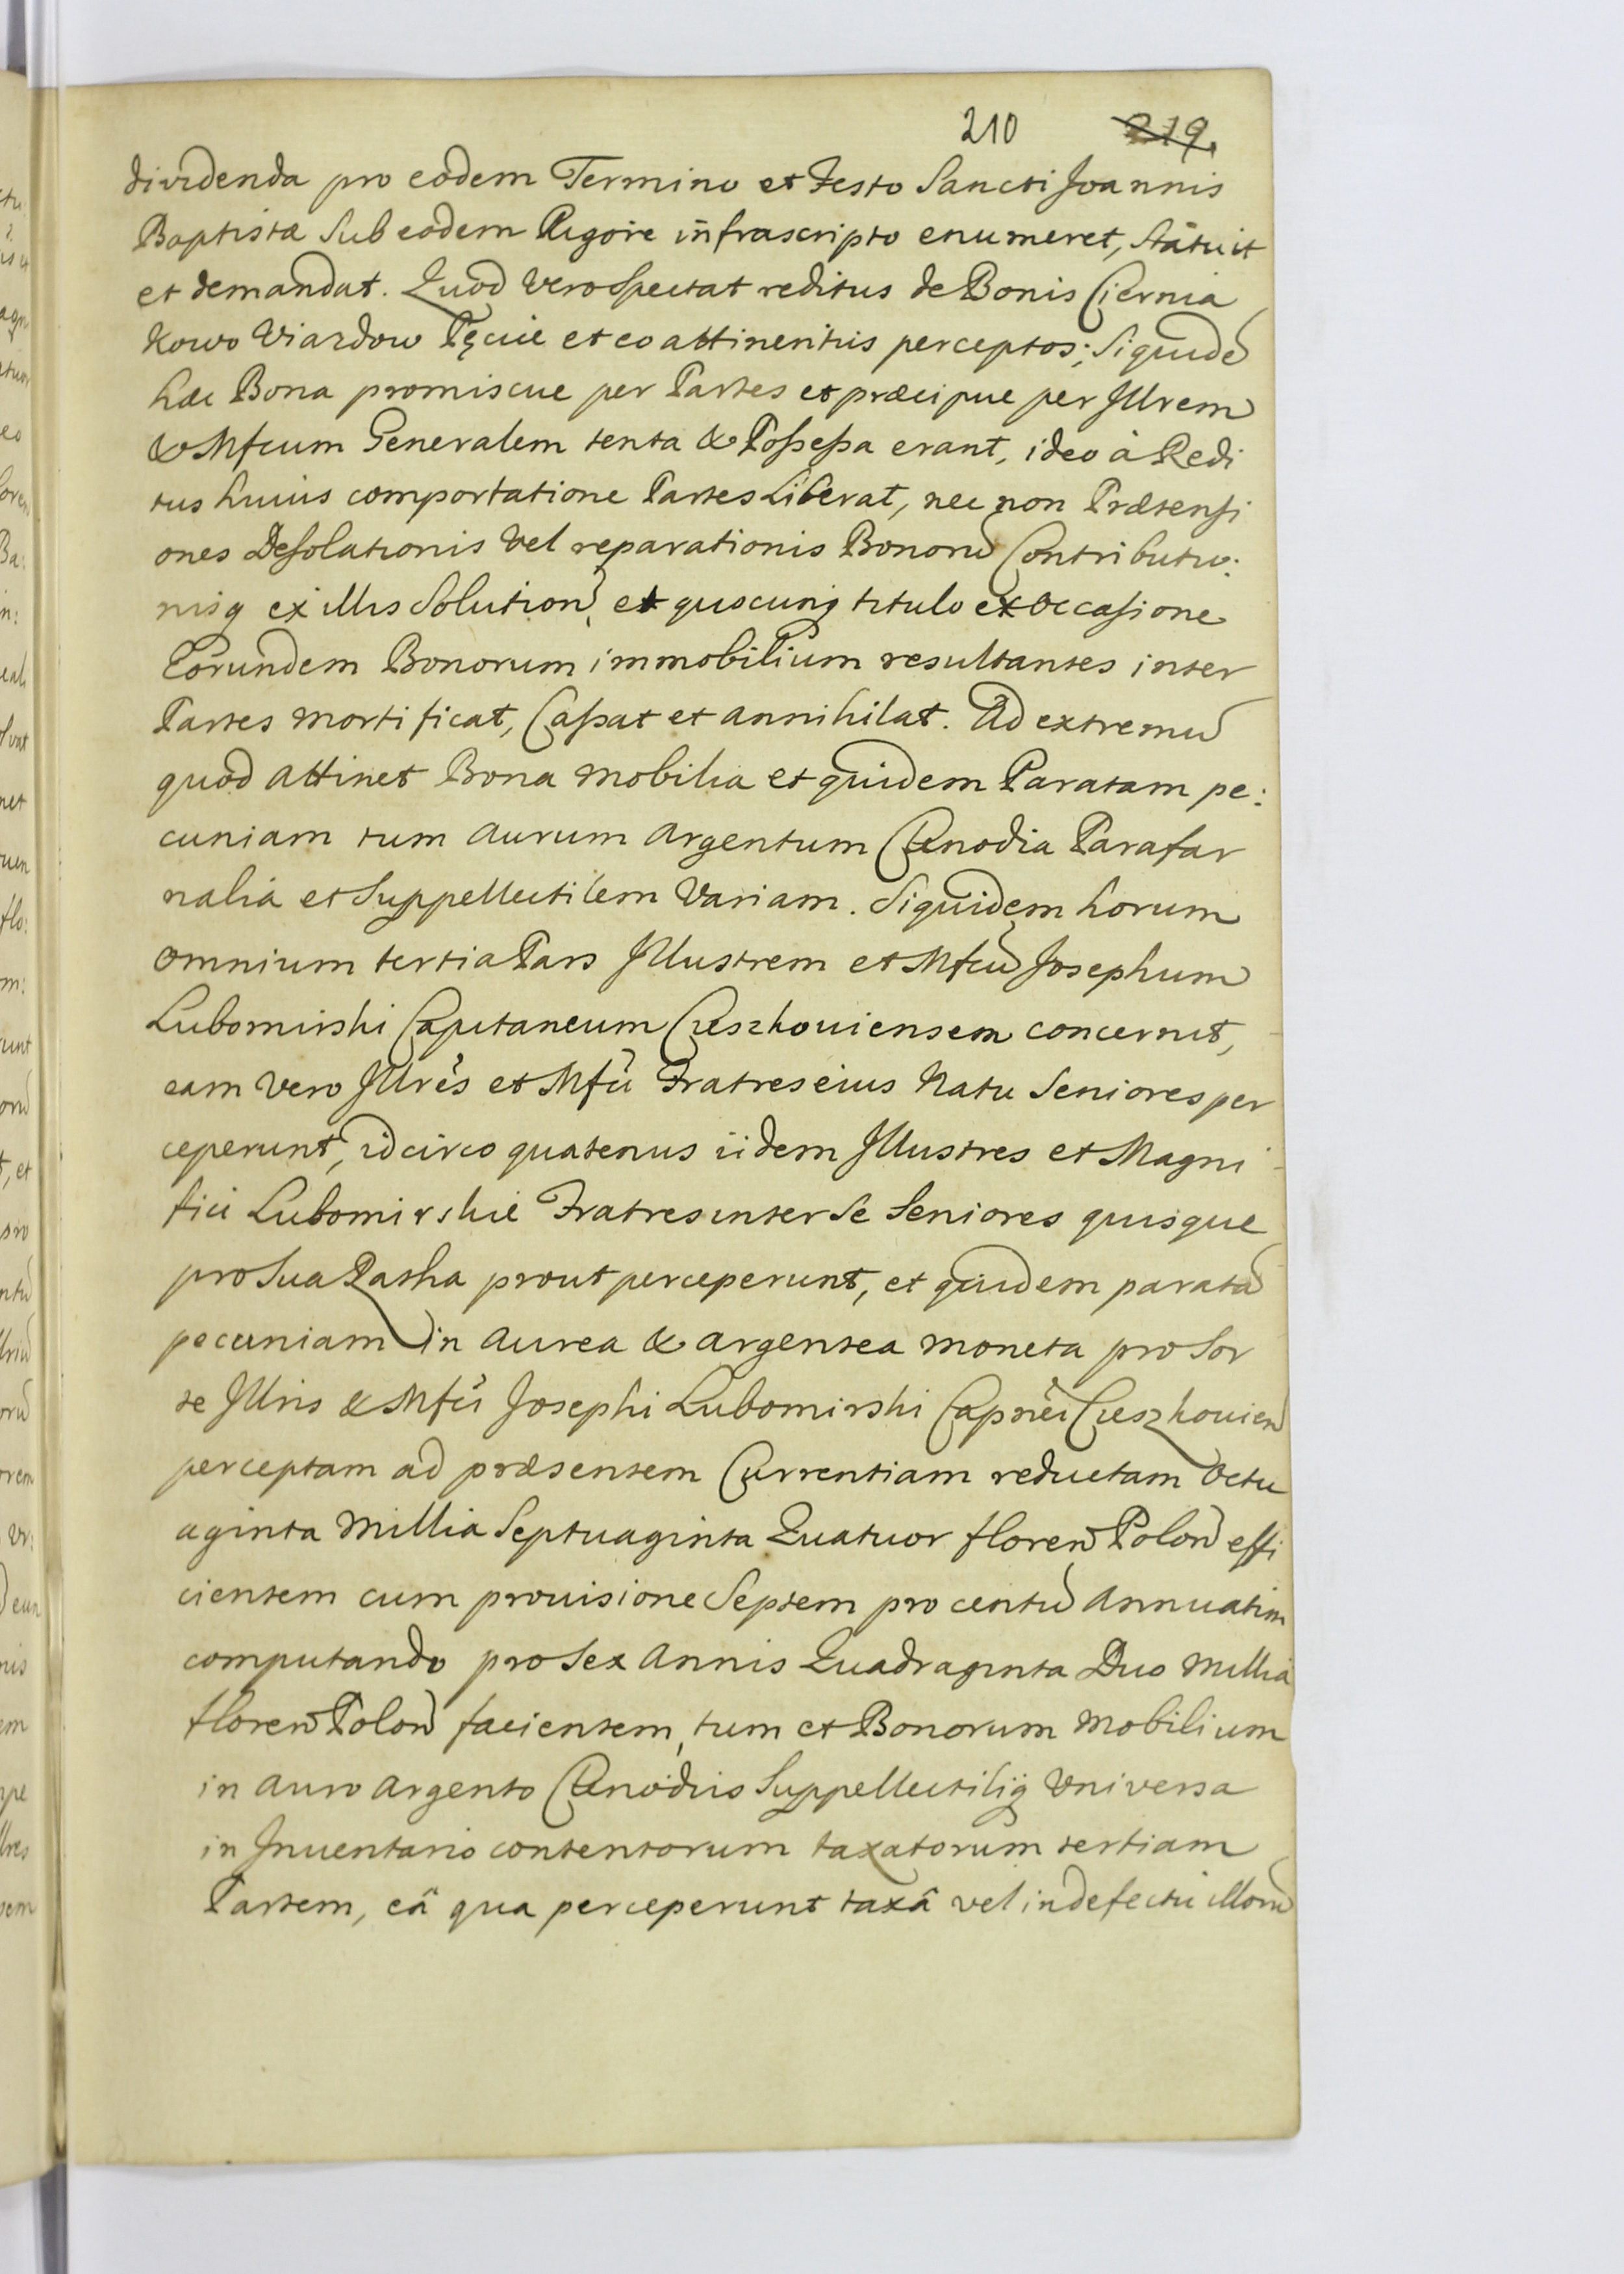 210 219.
dividenda pro eodem Termino et Festo Sancti Joannis
Baptistæ Sub eodem Rigore infrascripto enumeret, Statuit
et demandat. Quod vero Spectat reditus de Bonis Ciernia
kowo Viazdow Pęcice et eo attinentiis perceptos; Siquidē
hæc Bona promiscue per Partes et præcipue per Jllrem
& Mfcum Generalem tenta & Possessa erant, ideo à Redi
tus huius comportatione Partes Liberat, nec non Prætensi
ones Desolationis vel reparationis Bonorū Contributio:
nisq ex illis Solution, et quocunq titulo et Occasione
Eorundem Bonorum immobilium resultantes inter
Partes Mortificat, Cassat et annihilat. Ad extremū
quod attinet Bona Mobilia et quidem Paratam pe:
cuniam tum Aurum Argentum Clenodia Parafar
nalia et Suppellectilem Variam. Siquidem horum
omnium tertia Pars Jllustrem et Mfcū Josephum
Lubomirski Capitaneum Cieszkouiensem concernit,
eam vero Jllrēs et Mfci Fratres eius Natu Seniores per
ceperunt, idcirco quatenus iidem Jllustres et Magni
fici Lubomirskie Fratres inter Se Seniores quisque
pro Sua Ratha prout perceperunt, et quidem paratā
pecuniam in Aurea & argentea moneta pro Sor
te Jllris & Mfci Josephi Lubomirski Capnei Cieszkouien
perceptam ad præsentem Currentiam reductam Octu
aginta Millia Septuaginta Quatuor floren Polon effi
cientem cum prouisione Septem pro centū Annuatim
computando pro Sex Annis Quadraginta Duo Millia
floren Polon facientem, tum et Bonorum Mobilium
in Auro Argento Clenodiis Suppellectiliq Universa
in Jnuentario contentorum taxatorum tertiam
Partem, eâ qua perceperunt taxâ vel in defectu illorū